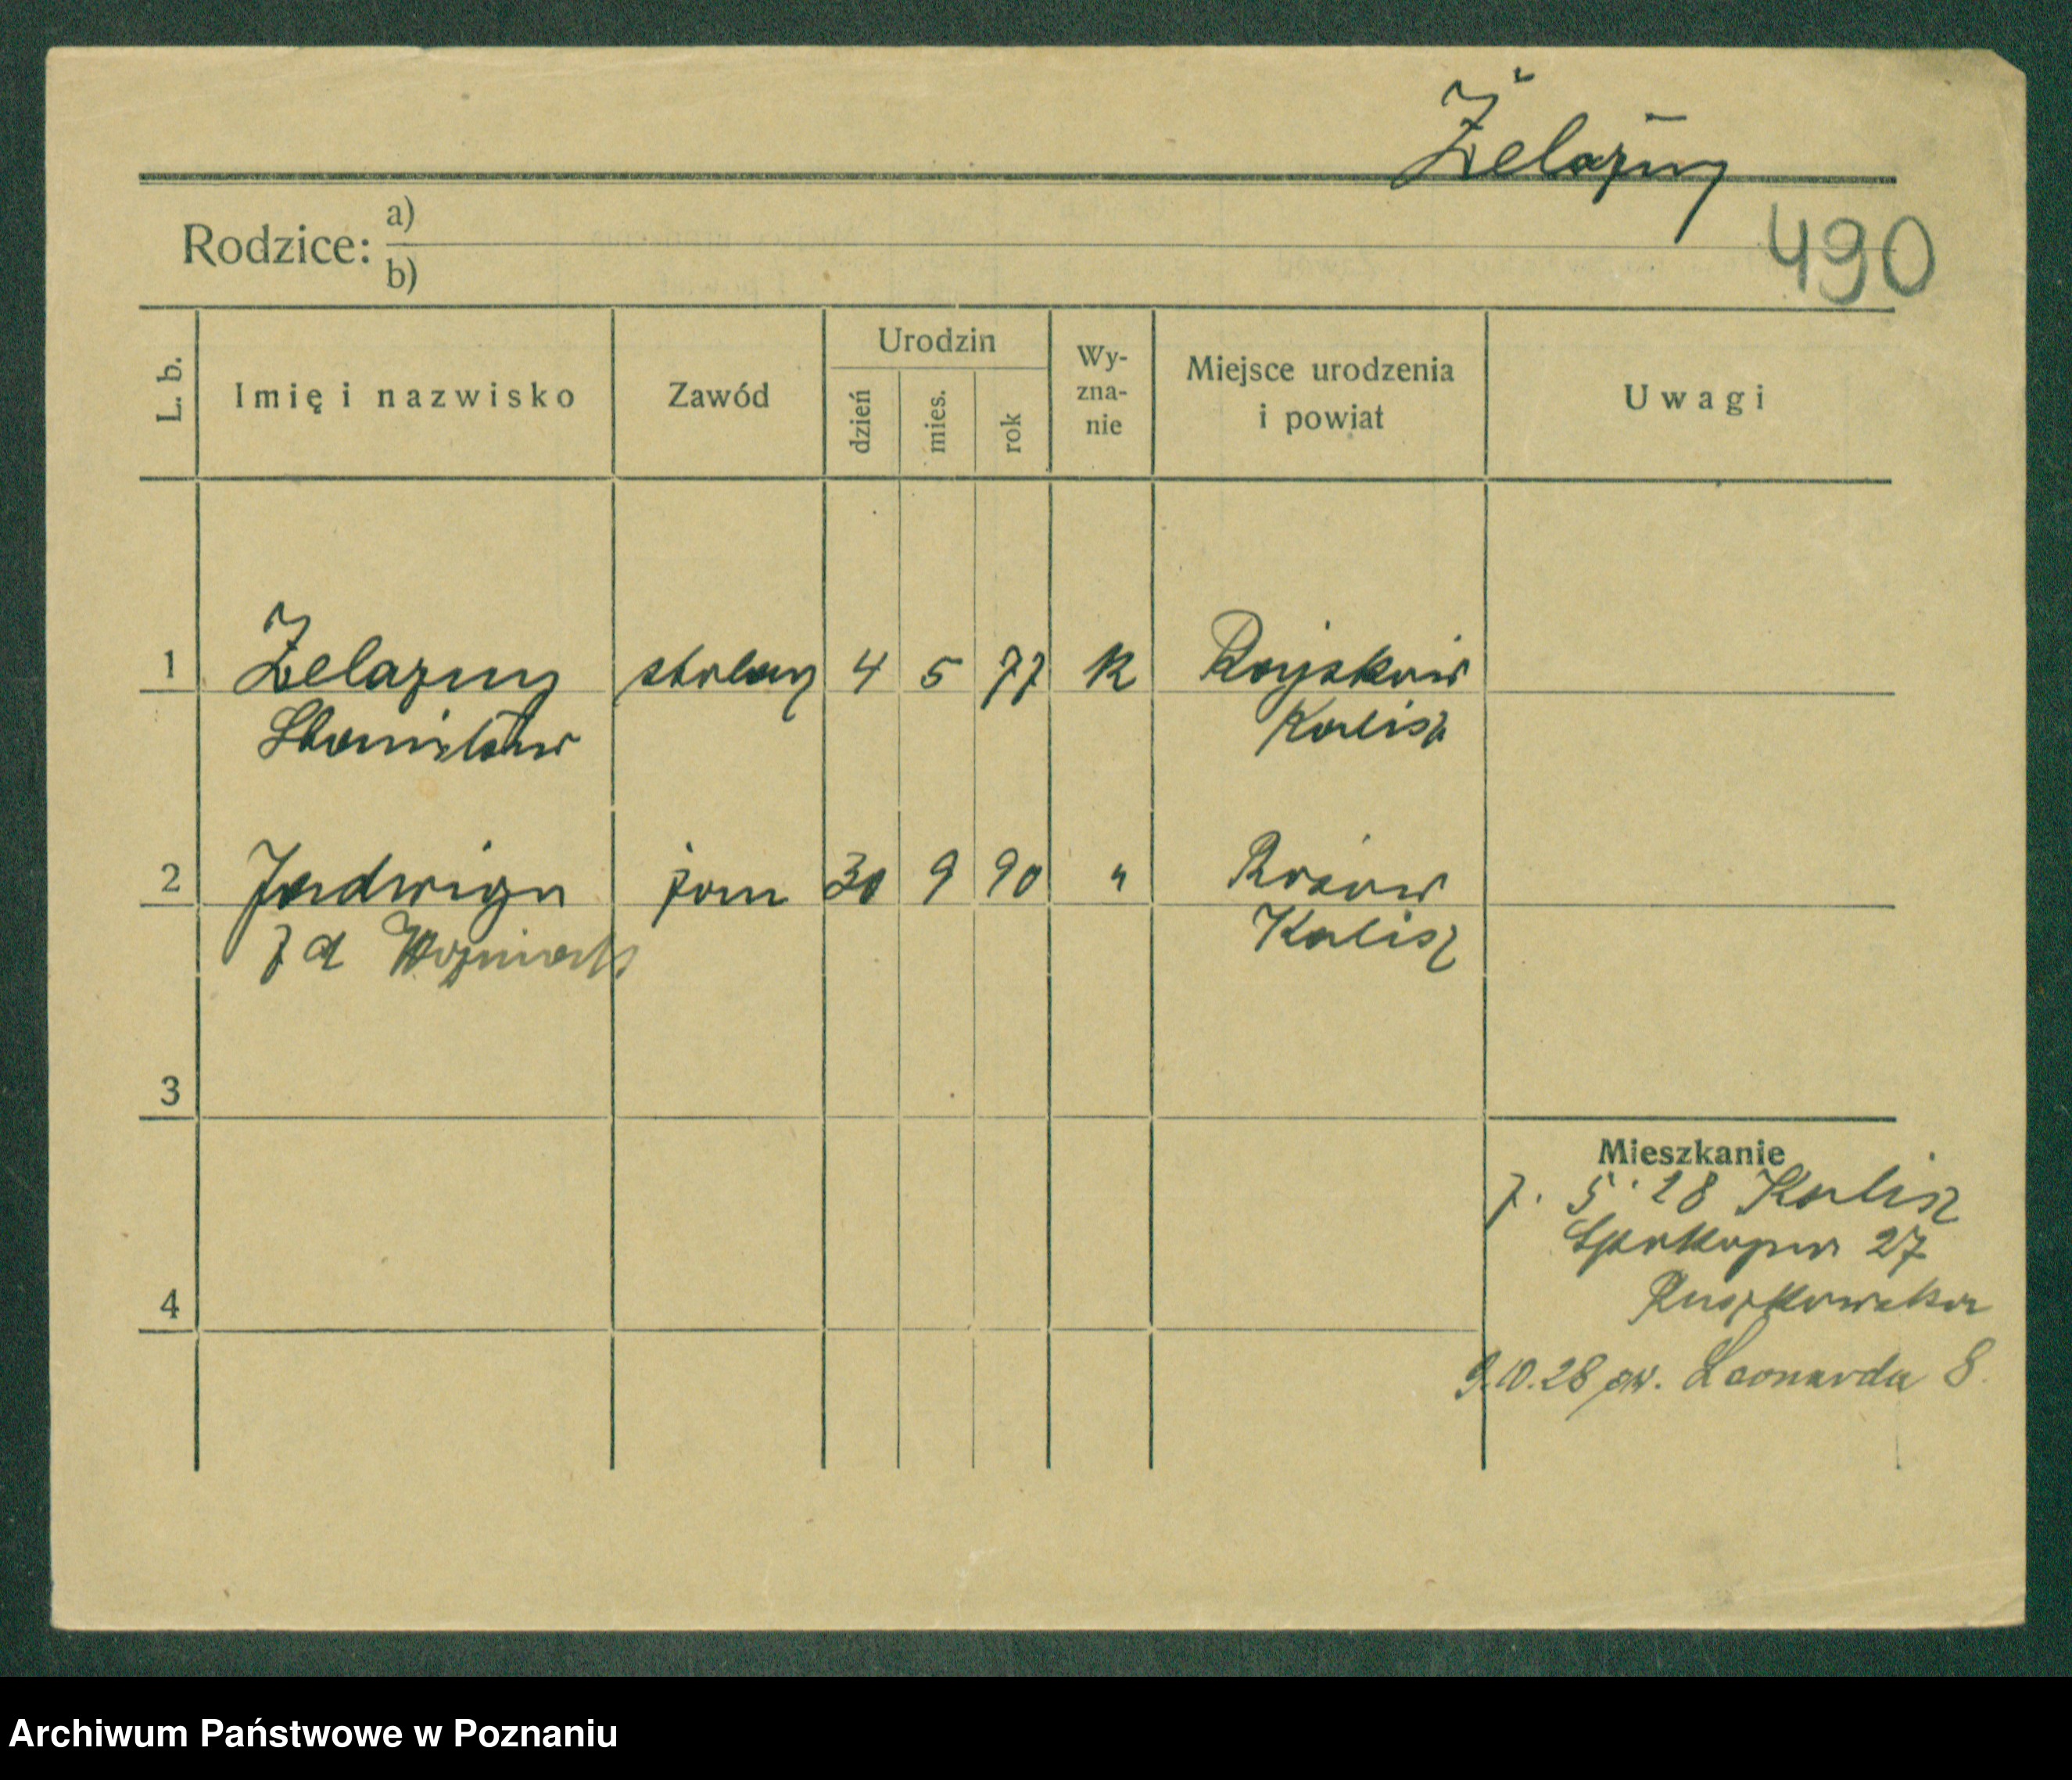 Żelazny
490
Rodzice: a)
b)
L. b. Imię i nazwisko Zawód Urodzin dzień mies. rok Wy-zna-nie Miejsce urodzenia i powiat Uwagi
1 Żelazny stolarz 4 5 77 R
Stanisław Kalisz
2 Jadwiga żona 30 9 90 "
z d Woźniak Kalisz
3
Mieszkanie
7. 5. 28 Kalisz
27
4
9.10.28 św. Leonarda 8.
Archiwum Państwowe w Poznaniu